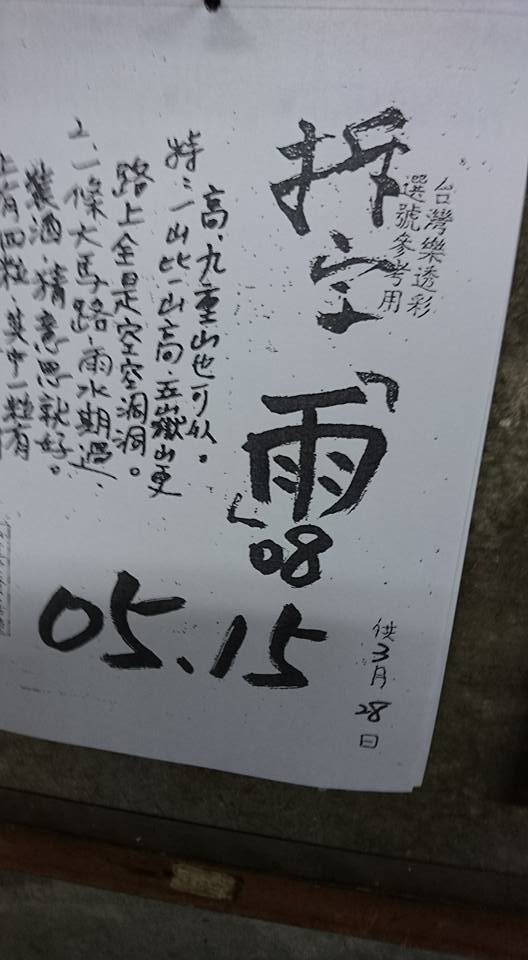 台灣樂透彩
選號參考用
拆空「雨」
08
05.15
供3月28日
上有四粒,其中一粒有
裝酒,猜意思就好。
2、一條大馬路,雨水期過、
路上全是空空洞洞。
特:一山比一山高,五嶽山更
高,九重山也可以。